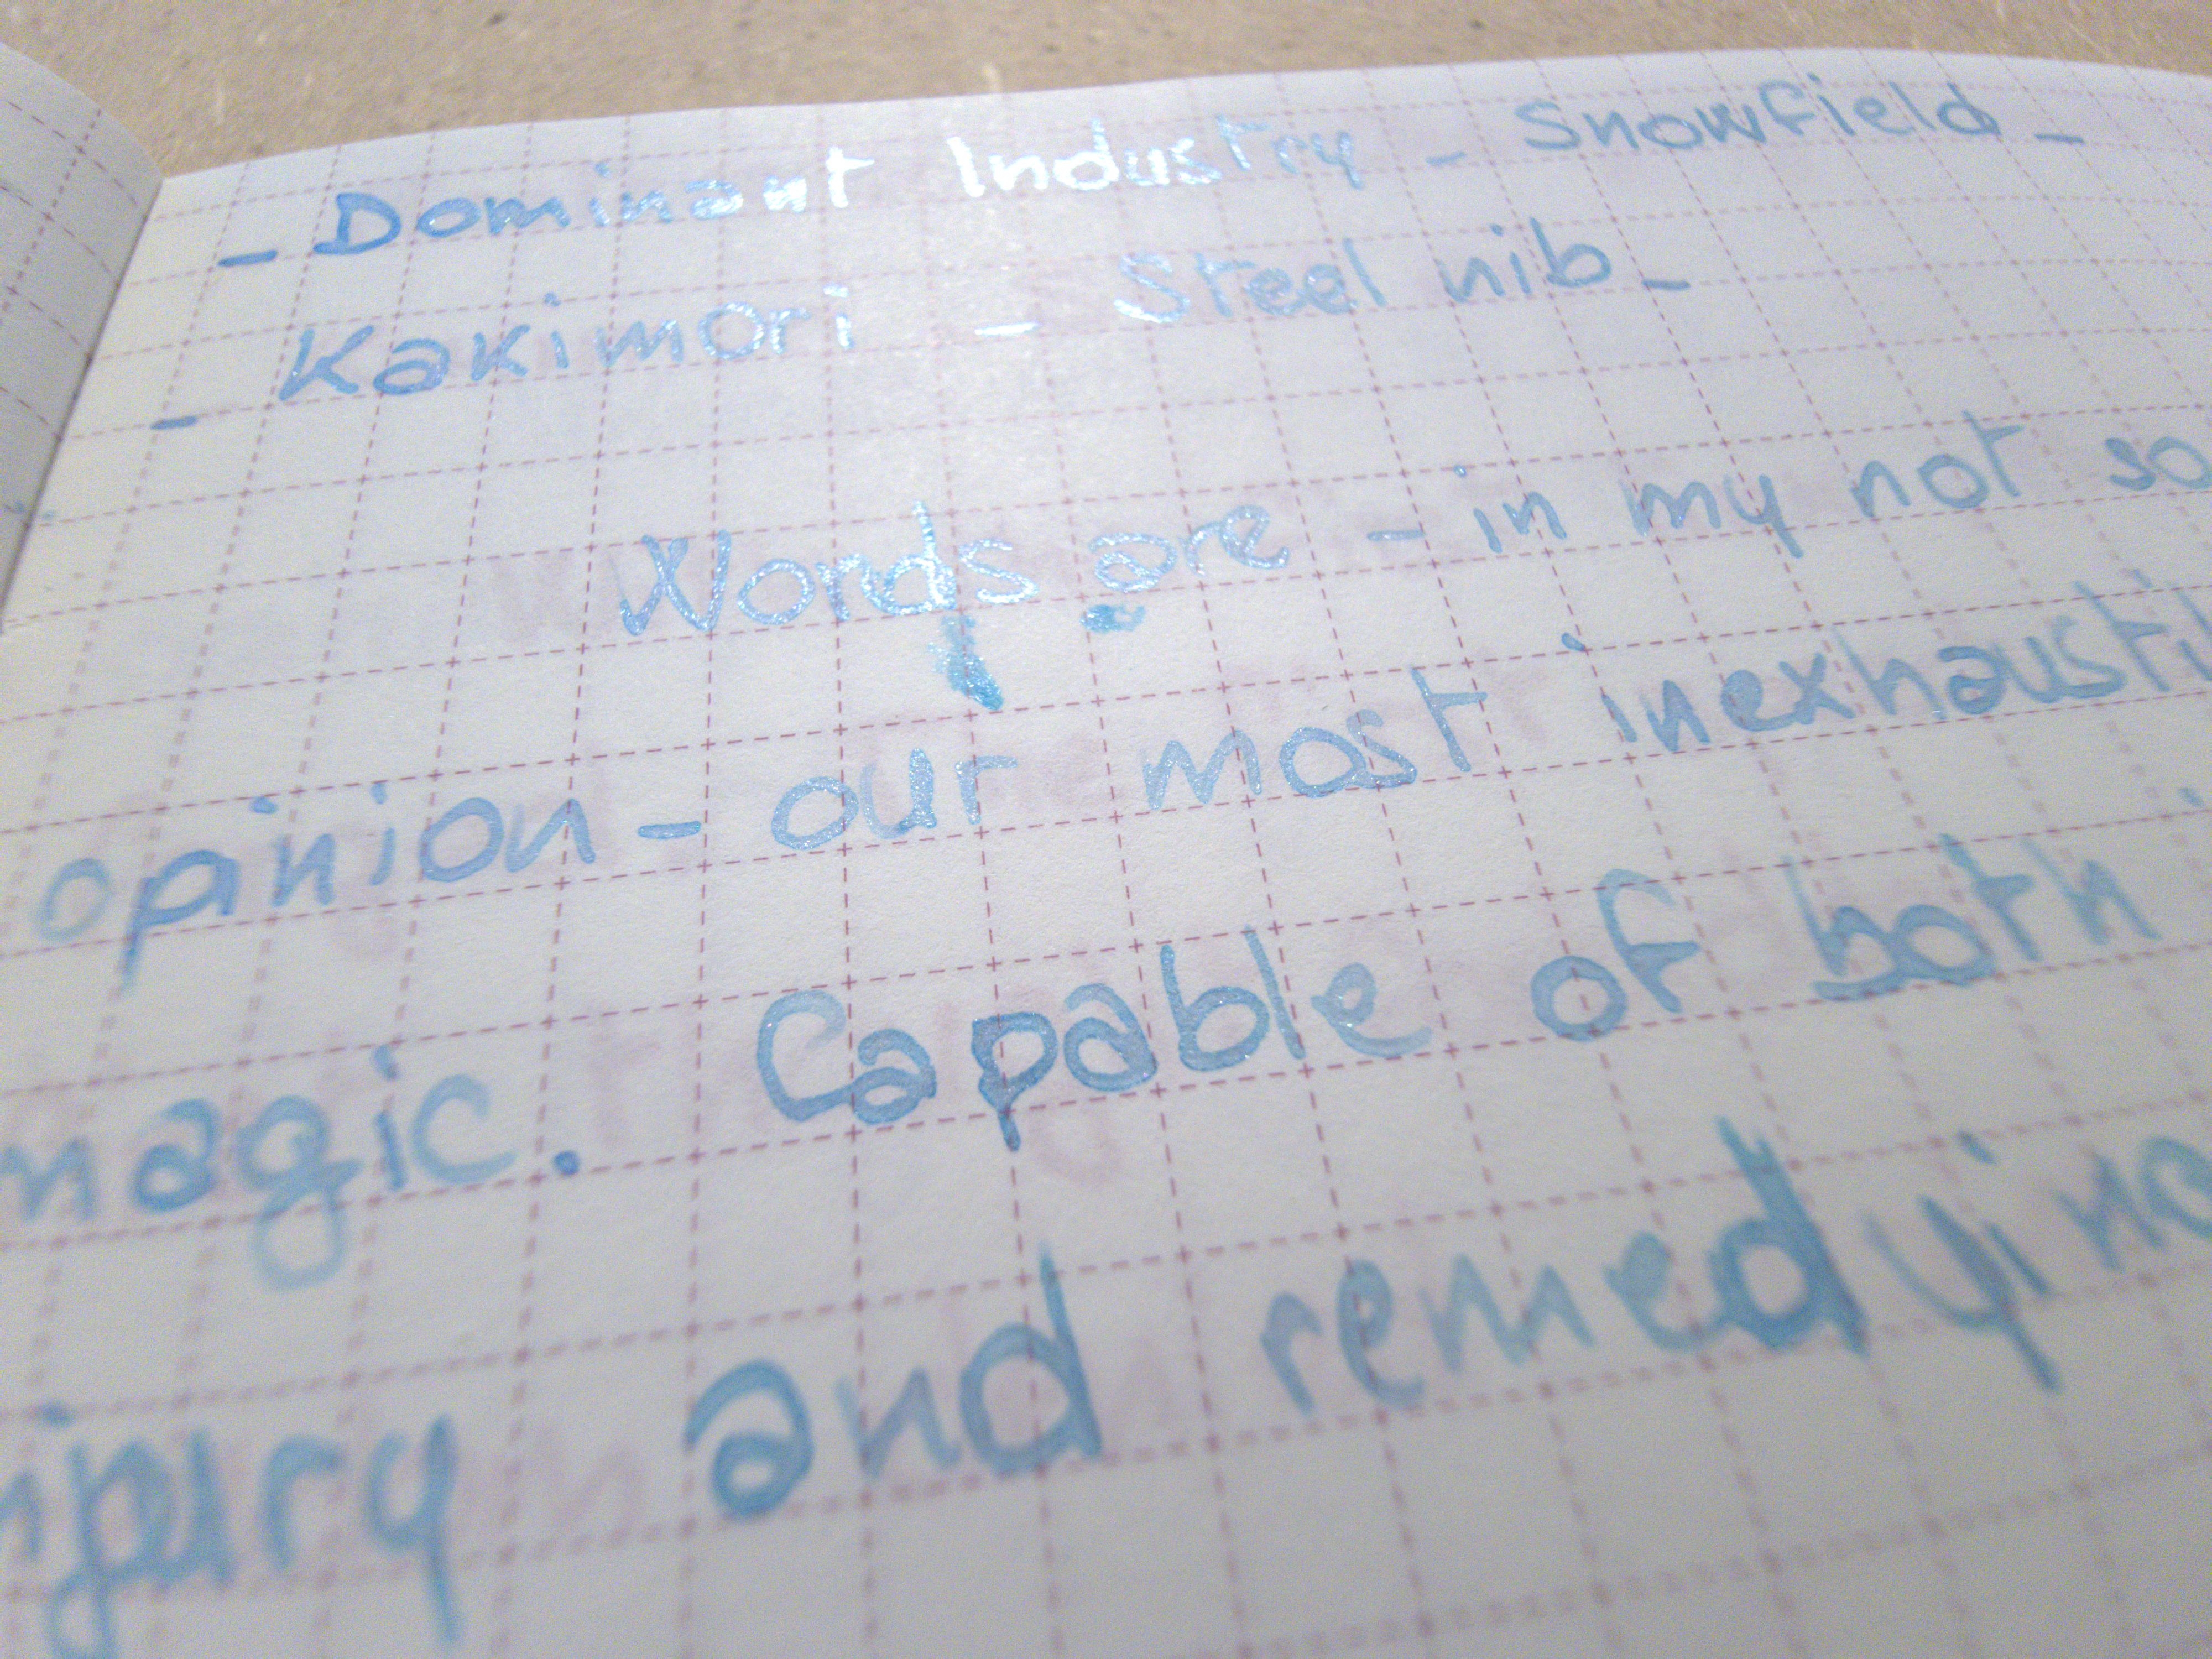 - Dominant Industry - Snowfield -
- Kakimori - Steel nib -
Words are - in my not so
opinion - our most
magic. Capable of both
and